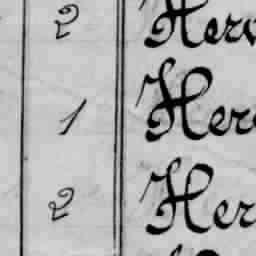 2 Herv
1 Her
2 Her